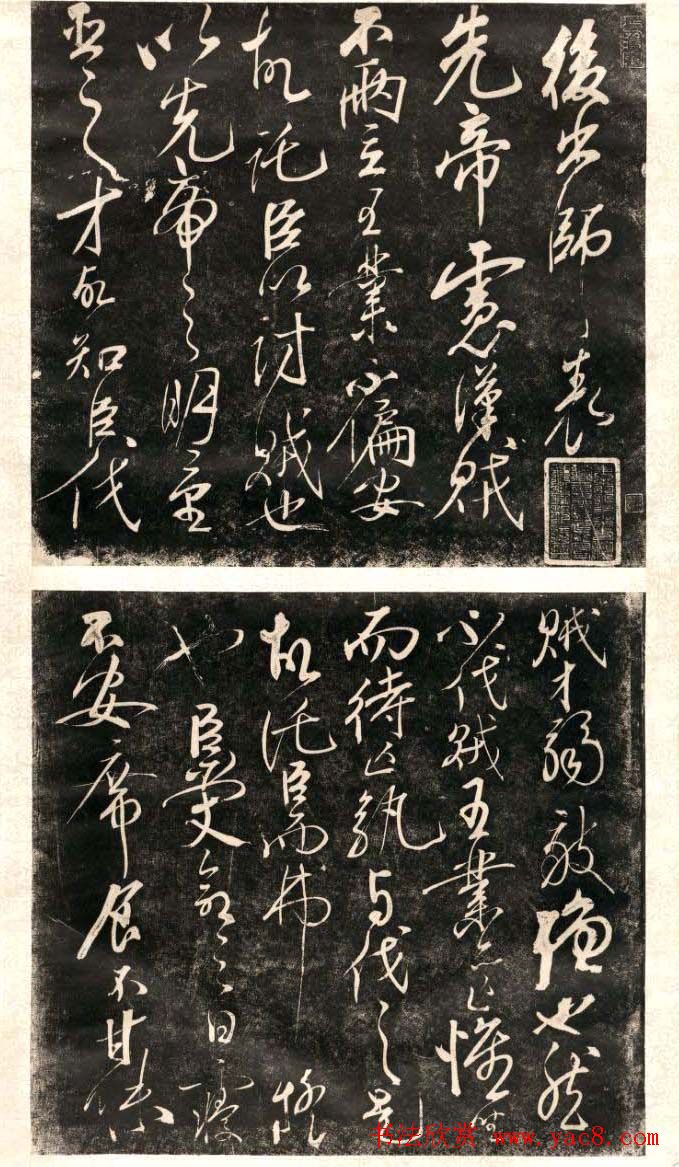 後出師表
先帝慮漢賊
不兩立王業不偏安
故託臣以討賊也
以先帝之明量
臣之才故知臣伐
賊才弱敵強也然
不伐賊王業亦亡惟
而待亡孰與伐之是
故託臣而弗疑
也臣受命之日寢
不安席食不甘味
书法欣赏 www.yac8.com